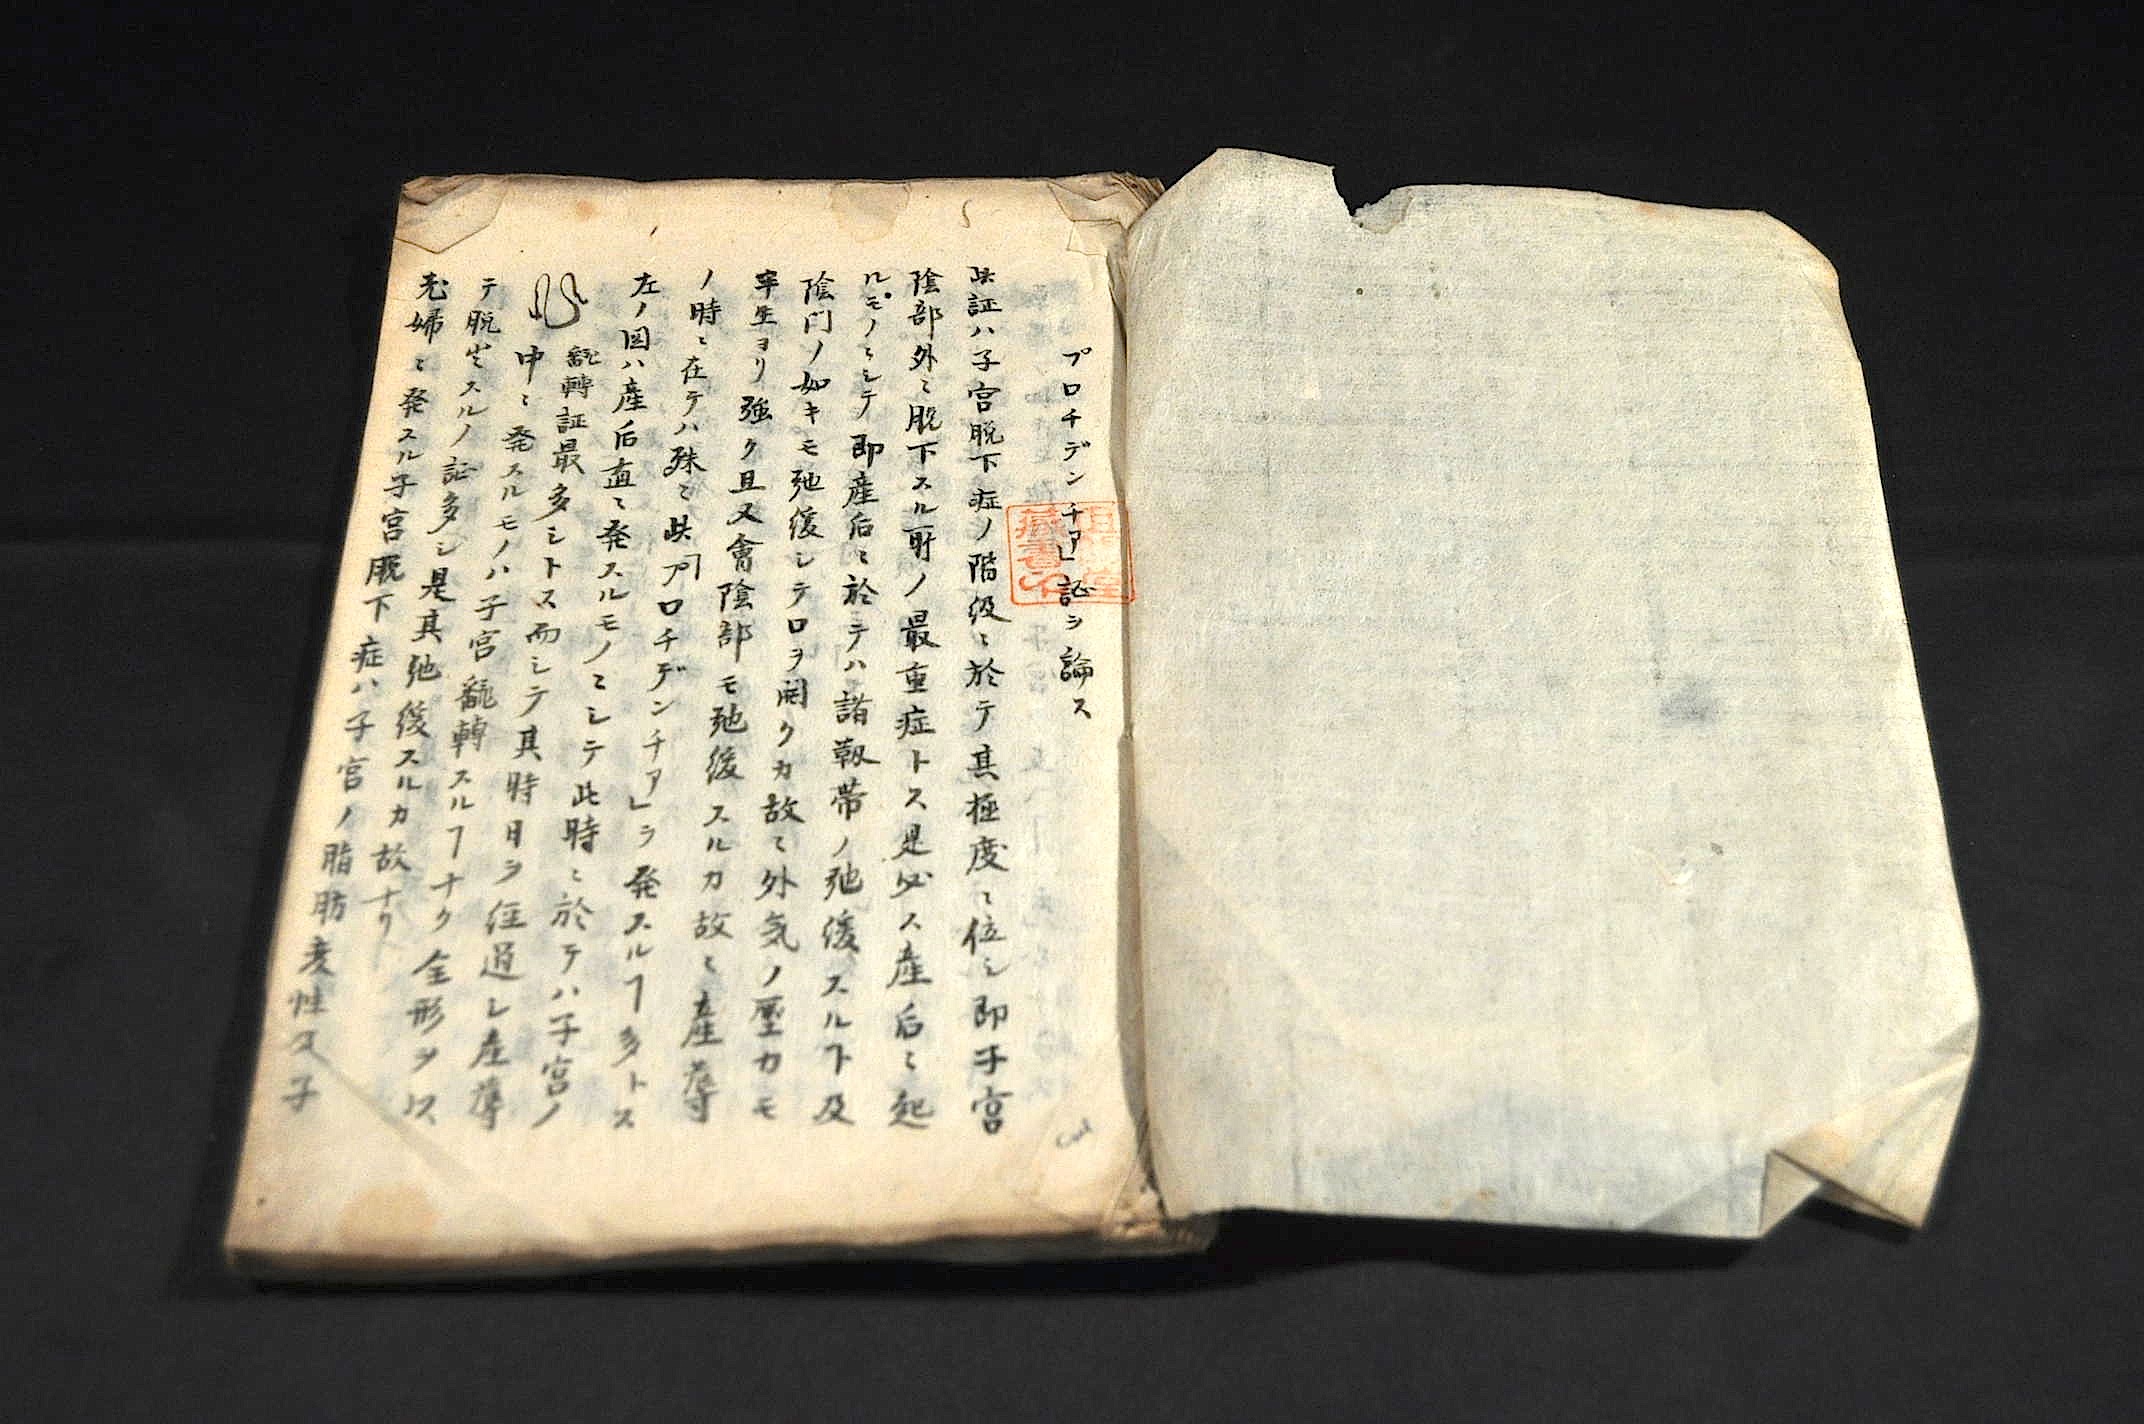 プロチデンチア」証ヲ論ス
此証ハ子宮脱下症ノ階級ニ於テ其極度ニ位シ即子宮
陰部外ニ脱下スル所ノ最重症トス是必ス産后ニ起
ルモノニシテ即産后ニ於テハ諸靱帯ノ弛緩スルト及
陰門ノ如キモ弛緩シテ口ヲ開クカ故ニ外気ノ壓力モ
平生ヨリ強ク且又會陰部モ弛緩スルカ故ニ産蓐
ノ時ニ在テハ殊ニ此「プロチデンチア」ヲ発スルヿ多トス
左ノ図ハ産后直ニ発スルモノニシテ此時ニ於テハ子宮ノ
翻轉証最多シトス而シテ其時日ヲ経過シ産蓐
中ニ発スルモノハ子宮翻轉スルヿナク全形ヲ以
テ脱出スルノ証多シ是其弛緩スルカ故ナリ
老婦ニ発スル子宮脱下症ハ子宮ノ脂肪変性又子
藏書